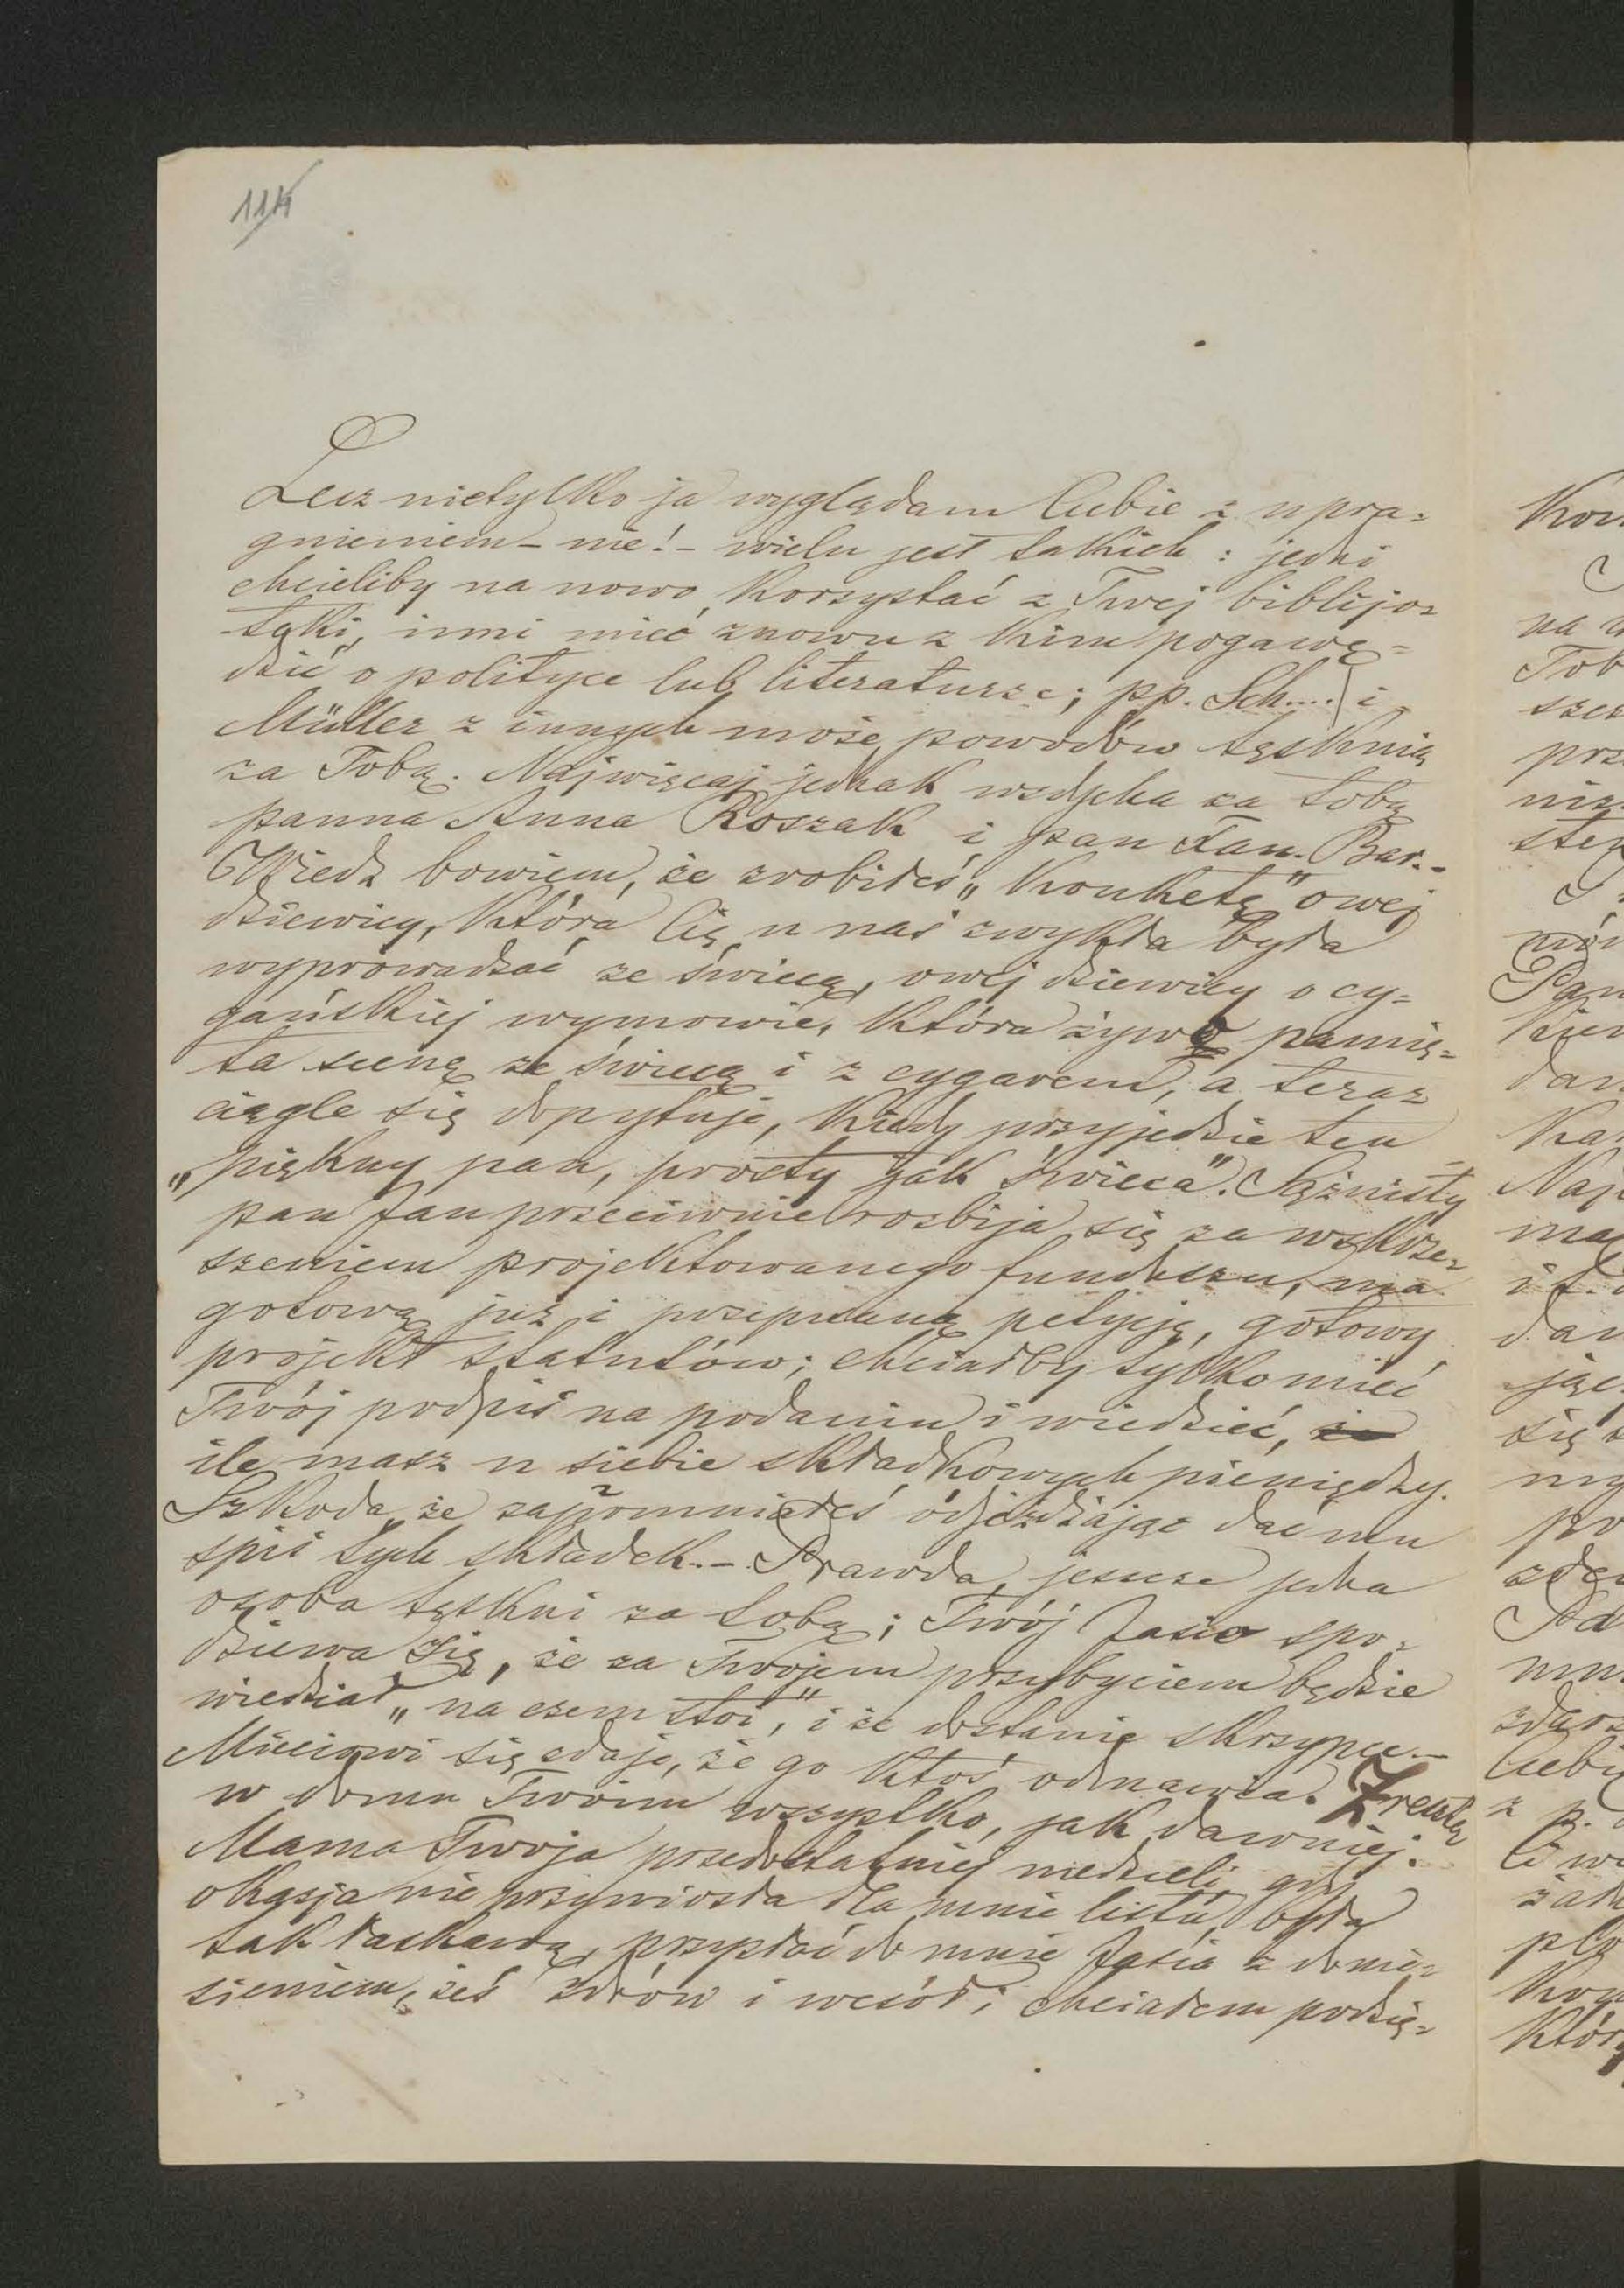 114
Lecz nietylko ja wyglądam Ciebie z upra=
gnieniem – nie! – wielu jest takich: jedni
chcieliby na nowo korzystać z Twej biblijo=
teki, inni mieć znowu z kim pogawę=
dzić o polityce lub literaturze; pp. Sch.... i
Müller z innych może powodów tęsknią
za Tobą. Najwięcej jednak wzdycha za Tobą
panna Anna Roszak i pan Jan. Bar.–
Wiedz bowiem, że zrobiłeś „konketę” owej
dziewicy, która Cię u nas zwykła była
wyprowadzać ze świecą, owej dziewicy o cy=
gańskiej wymowie, która żywo pamię=
ta scenę ze świecą i z cygarem, a teraz
ciągle się dopytuje, kiedy przyjedzie ten
„piękny pan, prosty jak świeca”. Sążnisty
pan Jan przeciwnie rozbija się za wskrze=
szeniem projektowanego funduszu, ma
gotową już i przepisaną petycję, gotowy
projekt statutów; chciałby tylko mieć
Twój podpis na podaniu i wiedzieć, że
ile masz u siebie składkowych pieniędzy.
Szkoda, że zapomniałeś odjeżdżając dać mu
spis tych składek.– Prawda, jeszcze jedna
osoba tęskni za Tobą; Twój Jasio spo=
dziewa się, że za Twojem przybyciem będzie
wiedział „na czem stoi,” i że dostanie skrzypce.–
Mieciowi się zdaje, że go ktoś odmawia. Zresztą
w domu Twoim wszystko, jak dawniej.
Mama Twoja przedostatniej niedzieli, gdy
okazja nie przyniosła dla mnie listu, była
tak łaskawą, przysłać do mnie Jasia z donie=
sieniem, żeś zdrów i wesół; chciałem podzię=
Kon
na
Tob
szcz
prz
niz
stę
Pan
dan
Naj
dan
się
po
Ciebi
z p.
który